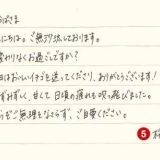 ばさま
にちは。ご無沙汰しております。
変わりなくお過ごしですか?
日はおいしいイチゴを送ってくださり、ありがとうございます!
みずみずしく、甘くて日頃の疲れも吹っ飛びました。
らもご無理をなさらず、ご自愛ください。
5